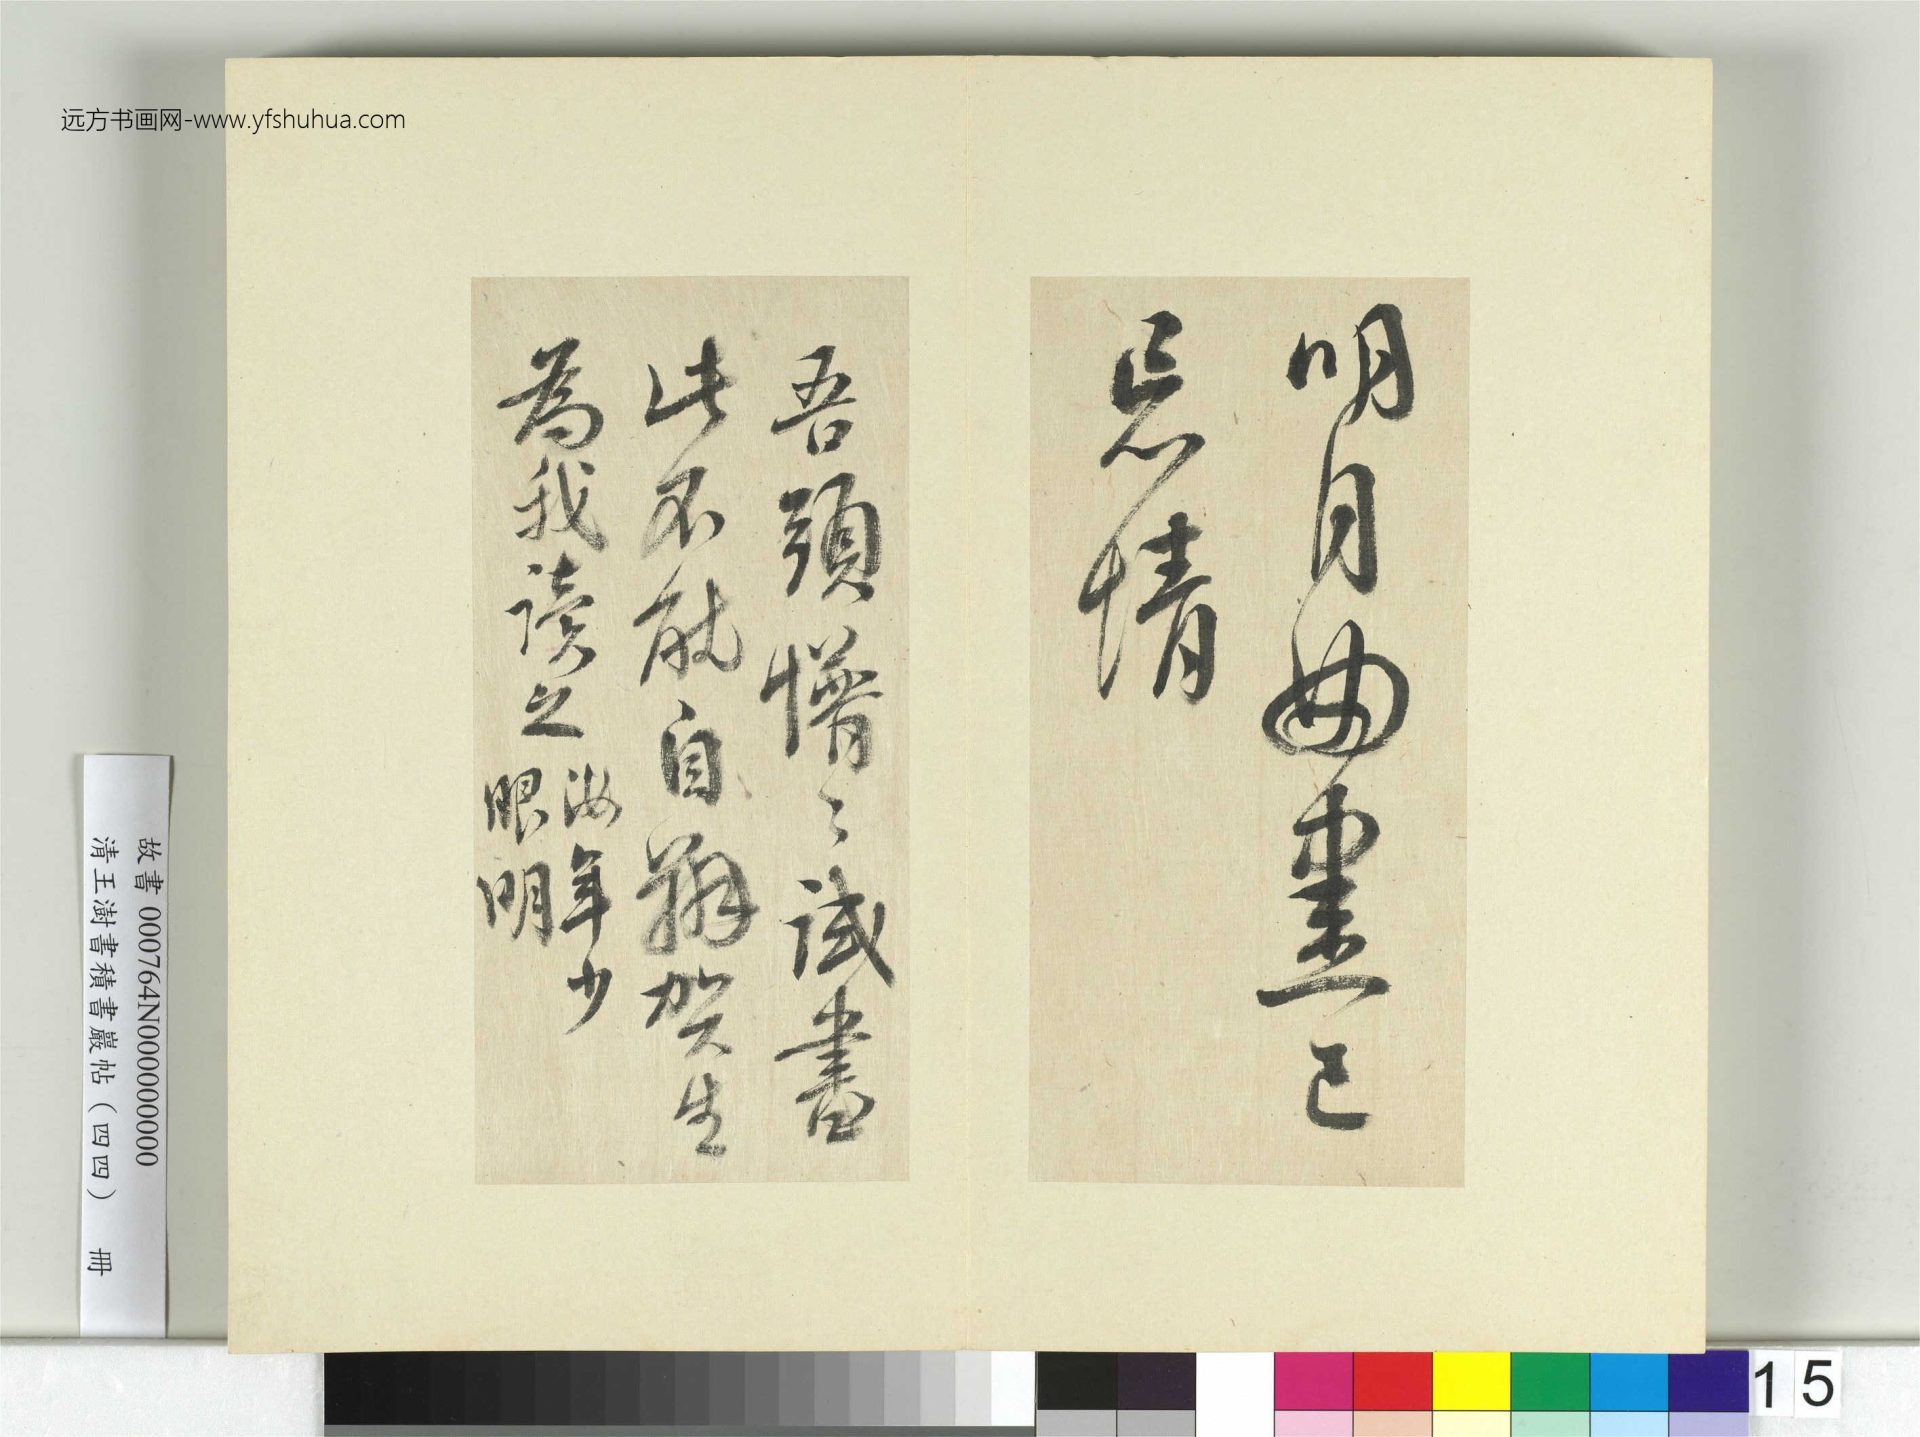 远方书画网-www.yfshuhua.com
明月曲盡已
忘情
吾頭懵〻試書
此不能自辨賀生
為我讀之
汝年少
眼明
故書 000764N000000000
清王澍書積書巖帖（四四） 冊
15